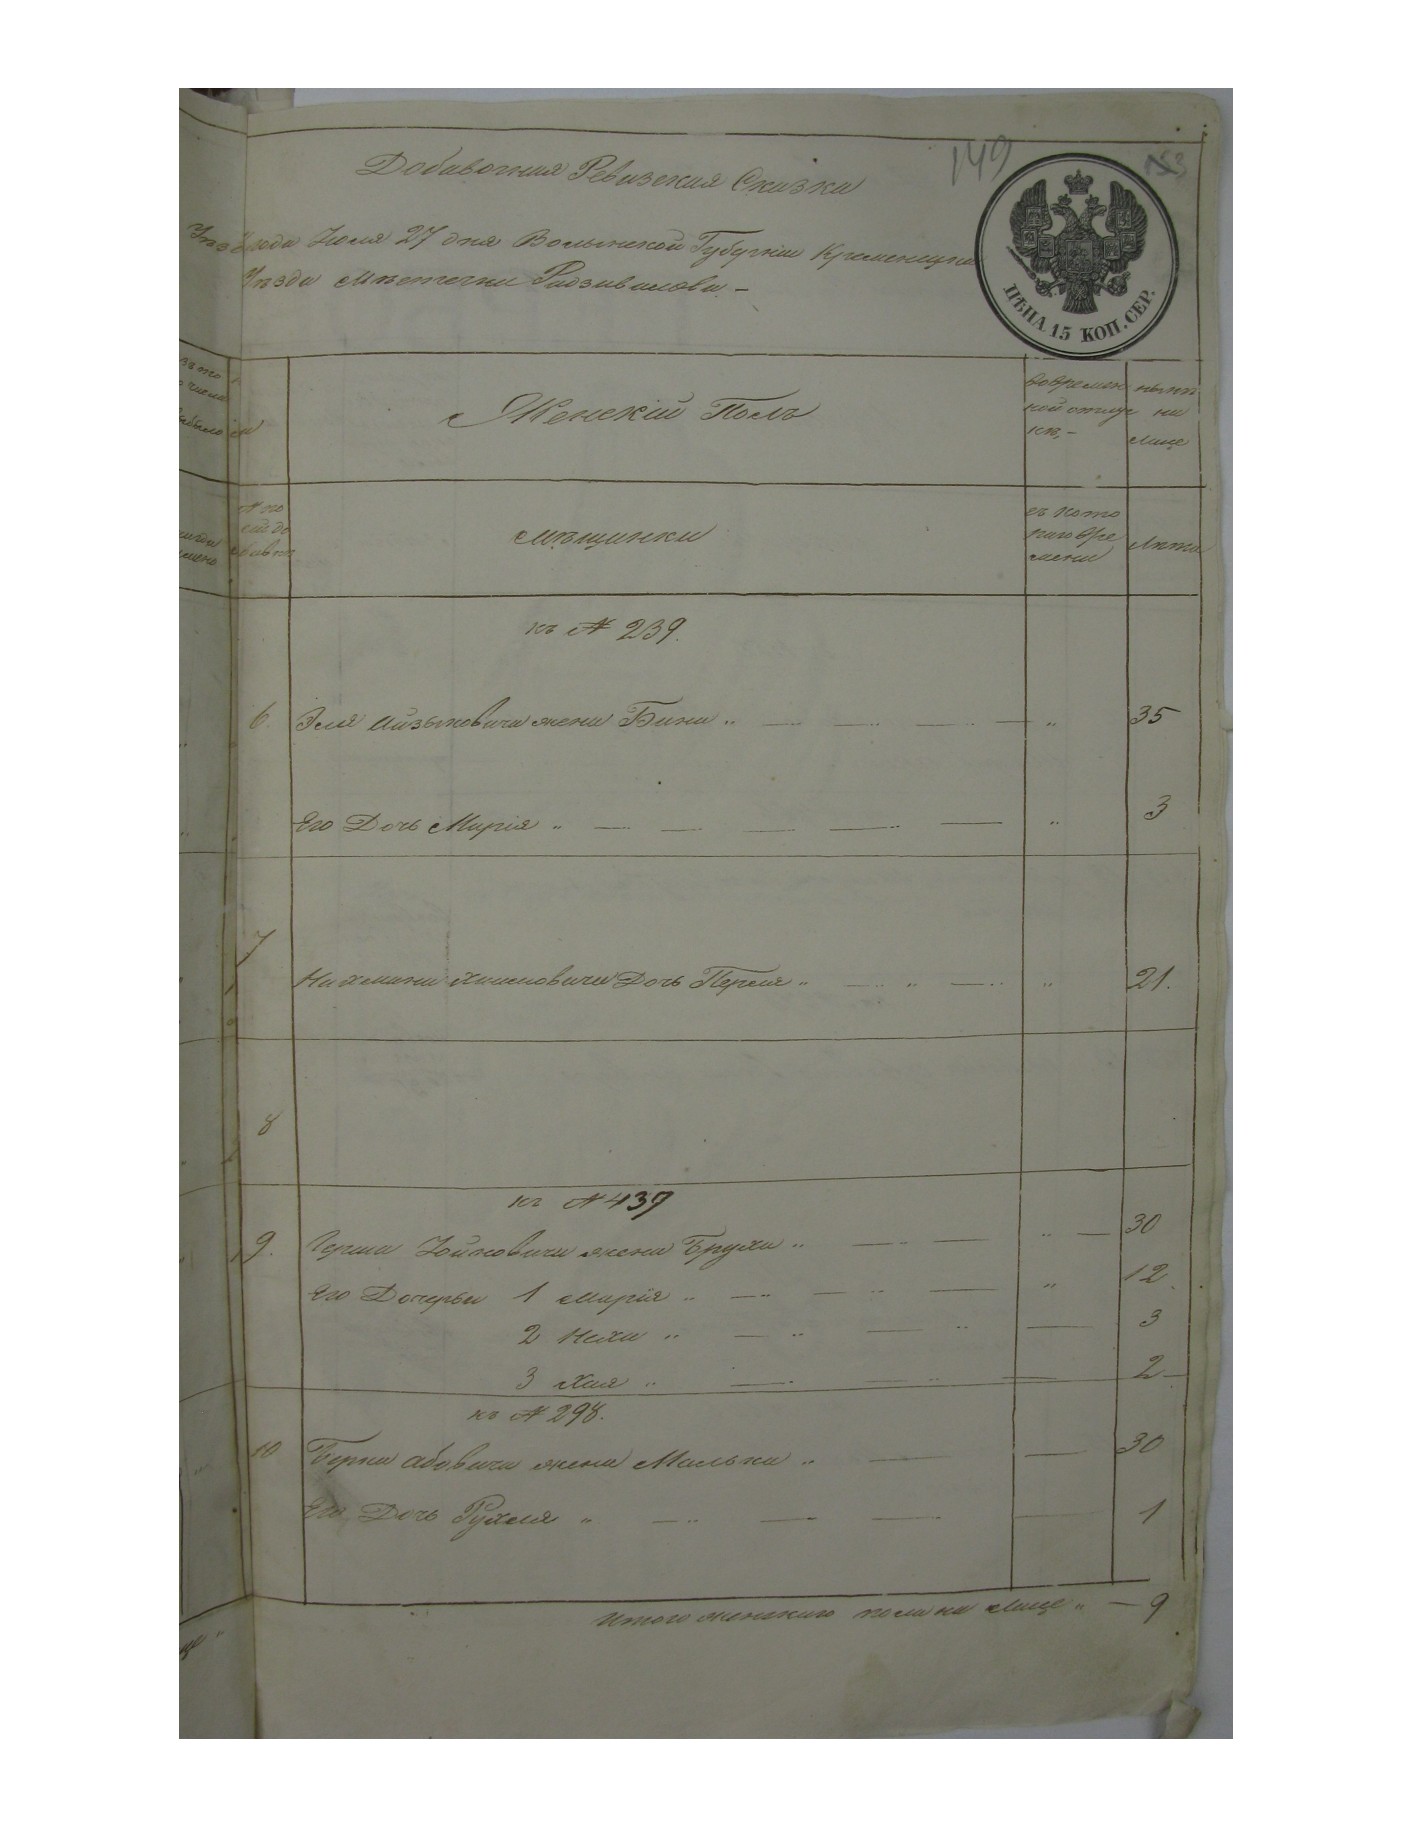 149
153
Добавочная Ревизская Сказка
года Июля 27 дня Волынской Губерніи Кременецка
Уѣзда Мѣстечка Радзивилова —
ЦѢНА 15 КОП. СЕР.
Женскій Полъ
вовремен
ной отлуч
кѣ,—
нынѣ
на
лице
N по
сей до
бавк
мѣщанки
съ кото
раго вре
мени
Лѣта
къ N 239.
6. Эля Айзыковича жена Бина " — " 35
Его Дочь Марія " — " 3
7
Нахмана Хаимовича Дочь Перля " — " 21.
8
къ N 439
9. Герша Юйновича жена Бруха " — " — 30
Его Дочерьи 1 Марія " — " 12
2 Неха " — 3
3 Хая " — 2
къ N 298.
10 Берка Абовича жена Малька " — 30
Его Дочь Рухля " — 1
Итого женскаго пола на Лице " — 9